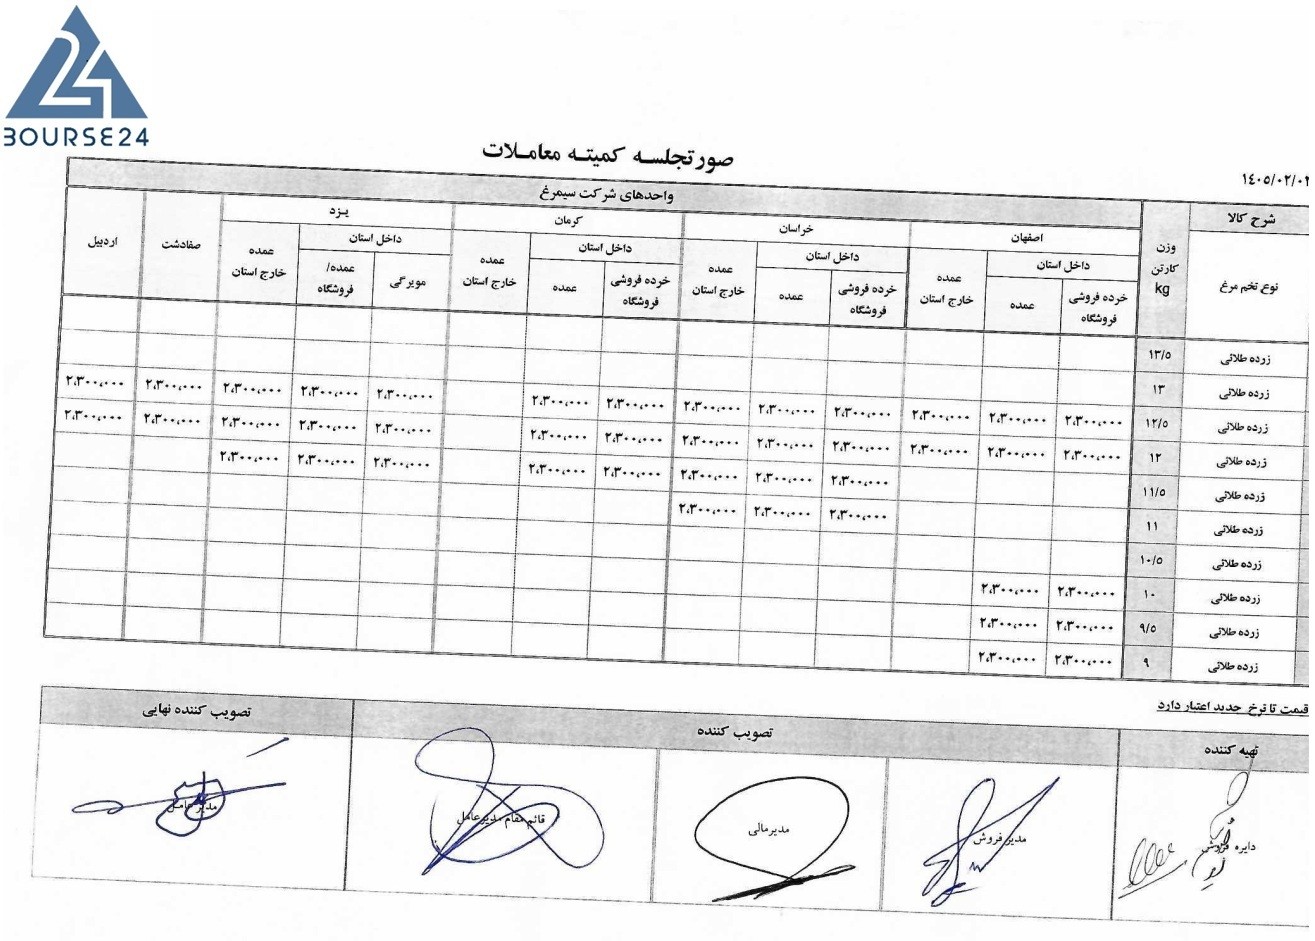 BOURSE24
صورتجلسه کمیته معاملات
۱۴۰۵/۰۲/۰۲
شرح کالا
نوع تخم مرغ
وزن
کارتن
kg
واحدهای شرکت سیمرغ
اصفهان
داخل استان
خرده فروشی
فروشگاه
عمده
عمده
خارج استان
خراسان
داخل استان
خرده فروشی
فروشگاه
عمده
عمده
خارج استان
کرمان
داخل استان
خرده فروشی
فروشگاه
عمده
عمده
خارج استان
یزد
داخل استان
مویرگی
عمده/
فروشگاه
عمده
خارج استان
صفادشت
اردبیل
زرده طلائی ۱۳/۵
زرده طلائی ۱۳
زرده طلائی ۱۲/۵ ۲،۳۰۰،۰۰۰ ۲،۳۰۰،۰۰۰ ۲،۳۰۰،۰۰۰ ۲،۳۰۰،۰۰۰ ۲،۳۰۰،۰۰۰ ۲،۳۰۰،۰۰۰ ۲،۳۰۰،۰۰۰ ۲،۳۰۰،۰۰۰ ۲،۳۰۰،۰۰۰ ۲،۳۰۰،۰۰۰ ۲،۳۰۰،۰۰۰ ۲،۳۰۰،۰۰۰ ۲،۳۰۰،۰۰۰
زرده طلائی ۱۲ ۲،۳۰۰،۰۰۰ ۲،۳۰۰،۰۰۰ ۲،۳۰۰،۰۰۰ ۲،۳۰۰،۰۰۰ ۲،۳۰۰،۰۰۰ ۲،۳۰۰،۰۰۰ ۲،۳۰۰،۰۰۰ ۲،۳۰۰،۰۰۰ ۲،۳۰۰،۰۰۰ ۲،۳۰۰،۰۰۰ ۲،۳۰۰،۰۰۰ ۲،۳۰۰،۰۰۰ ۲،۳۰۰،۰۰۰
زرده طلائی ۱۱/۵ ۲،۳۰۰،۰۰۰ ۲،۳۰۰،۰۰۰ ۲،۳۰۰،۰۰۰ ۲،۳۰۰،۰۰۰ ۲،۳۰۰،۰۰۰ ۲،۳۰۰،۰۰۰ ۲،۳۰۰،۰۰۰ ۲،۳۰۰،۰۰۰
زرده طلائی ۱۱ ۲،۳۰۰،۰۰۰ ۲،۳۰۰،۰۰۰ ۲،۳۰۰،۰۰۰
زرده طلائی ۱۰/۵
زرده طلائی ۱۰ ۲،۳۰۰،۰۰۰ ۲،۳۰۰،۰۰۰
زرده طلائی ۹/۵ ۲،۳۰۰،۰۰۰ ۲،۳۰۰،۰۰۰
زرده طلائی ۹ ۲،۳۰۰،۰۰۰ ۲،۳۰۰،۰۰۰
قیمت تا نرخ جدید اعتبار دارد
تهیه کننده
تصویب کننده
تصویب کننده نهایی
دایره فروش
مدیر فروش
مدیرمالی
قائم مقام مدیرعامل
مدیر عامل